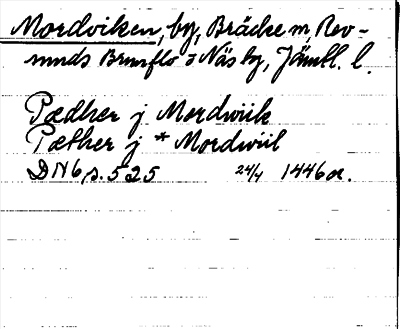 Mordviken, by, Bräcke m, Rev-
sunds Brunflo o Näs tg, Jämtl. l.
Pædher j Mordwiik
Pæther j * Mordwiil
DN6, s. 525 24/4 1446 or.